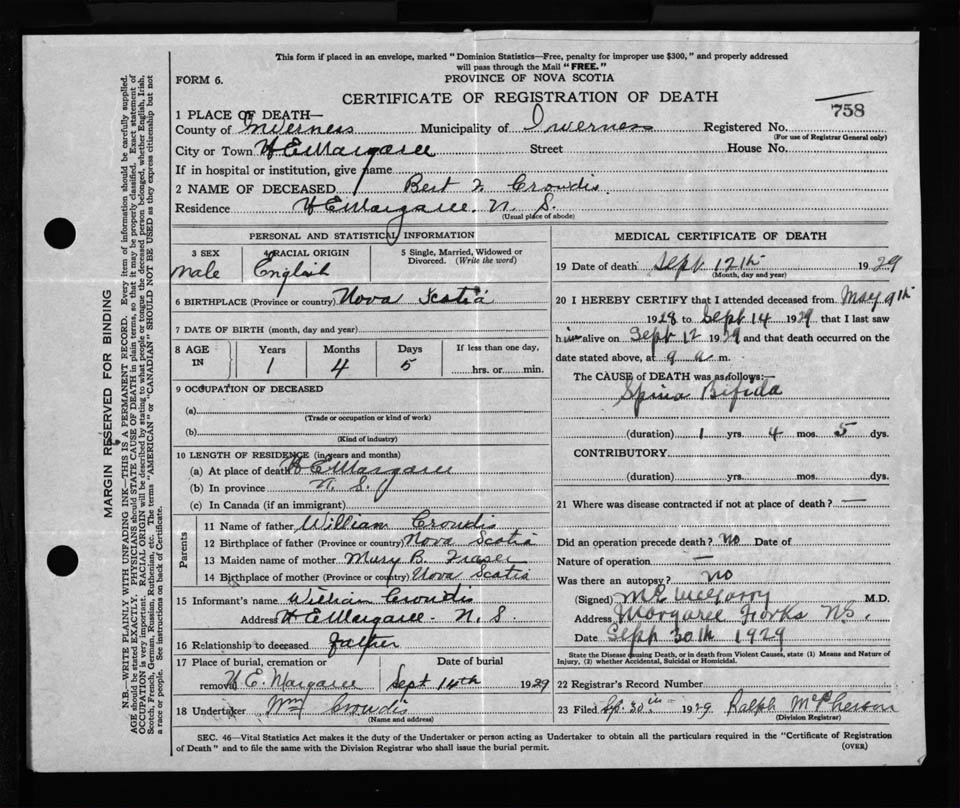 This form if placed in an envelope, marked "Dominion Statistics—Free, penalty for improper use $300," and properly addressed
will pass through the Mail "FREE."
FORM 6.
PROVINCE OF NOVA SCOTIA
CERTIFICATE OF REGISTRATION OF DEATH
758
1 PLACE OF DEATH—
County of Inverness Municipality of Inverness Registered No.
(For use of Registrar General only)
City or Town N E Margaree Street House No.
If in hospital or institution, give name
2 NAME OF DECEASED Bert Crowdis
Residence N E Margaree. N. S.
(Usual place of abode)
PERSONAL AND STATISTICAL INFORMATION
3 SEX
Male
4 RACIAL ORIGIN
English
5 Single, Married, Widowed or
Divorced. (Write the word)
6 BIRTHPLACE (Province or country) Nova Scotia
7 DATE OF BIRTH (month, day and year)
8 AGE IN
Years Months Days If less than one day,
1 4 5 hrs. or min.
9 OCCUPATION OF DECEASED
(a)
(Trade or occupation or kind of work)
(b)
(Kind of industry)
10 LENGTH OF RESIDENCE (in years and months)
(a) At place of death N E Margaree
(b) In province N. S.
(c) In Canada (if an immigrant)
Parents
11 Name of father William Crowdis
12 Birthplace of father (Province or country) Nova Scotia
13 Maiden name of mother Mary B. Fraser
14 Birthplace of mother (Province or country) Nova Scotia
15 Informant's name William Crowdis
Address N E Margaree - N. S.
16 Relationship to deceased Father
17 Place of burial, cremation or Date of burial
removal N. E. Margaree Sept 14th 1929
18 Undertaker Wm Crowdis
(Name and address)
MEDICAL CERTIFICATE OF DEATH
19 Date of death Sept 12th 1929
(Month, day and year)
20 I HEREBY CERTIFY that I attended deceased from May 9th
1928 to Sept 14 1929 that I last saw
him alive on Sept 12 1929 and that death occurred on the
date stated above, at 9 a m.
The CAUSE of DEATH was as follows:—
Spina Bifida
(duration) 1 yrs. 4 mos. 5 dys.
CONTRIBUTORY
(duration) yrs. mos. dys.
21 Where was disease contracted if not at place of death? —
Did an operation precede death? No Date of
Nature of operation —
Was there an autopsy? no
(Signed) M.D.
Address Margaree Forks NS.
Date Sept 30th 1929
State the Disease causing Death, or in death from Violent Causes, state (1) Means and Nature of
Injury, (2) whether Accidental, Suicidal or Homicidal.
22 Registrar's Record Number
23 Filed Sp. 30 1929 Ralph McPherson
(Division Registrar)
SEC. 46—Vital Statistics Act makes it the duty of the Undertaker or person acting as Undertaker to obtain all the particulars required in the "Certificate of Registration
of Death" and to file the same with the Division Registrar who shall issue the burial permit.
(OVER)
MARGIN RESERVED FOR BINDING
N.B.—WRITE PLAINLY WITH UNFADING INK—THIS IS A PERMANENT RECORD. Every item of information should be carefully supplied.
AGE should be stated EXACTLY. PHYSICIANS should STATE CAUSE OF DEATH in plain terms, so that it may be properly classified. Exact statement of
OCCUPATION is very important. RACIAL ORIGIN will be described by stating to what people or tongue the deceased person belonged, whether English, Irish,
Scotch, French, German, Russian, Ruthenian, etc. The terms "AMERICAN" or "CANADIAN" SHOULD NOT BE USED as they express citizenship but not
a race or people. See instructions on back of Certificate.